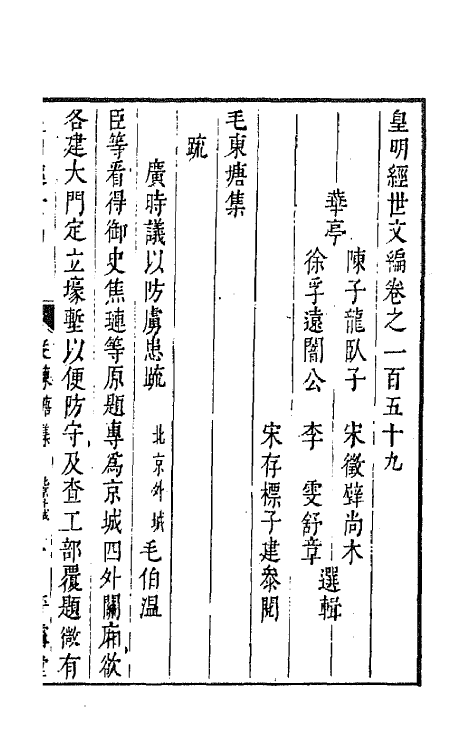 皇明經世文編卷之一百五十九
華亭
陳子龍臥子 宋徵璧尚木
徐孚遠闇公 李 雯舒章
選輯
宋存標子建參閱
毛東塘集
疏
廣時議以防虜患疏 北京外城 毛伯溫
臣等看得御史焦璉等原題專爲京城四外關廂欲
各建大門定立壕塹以便防守及查工部覆題微有